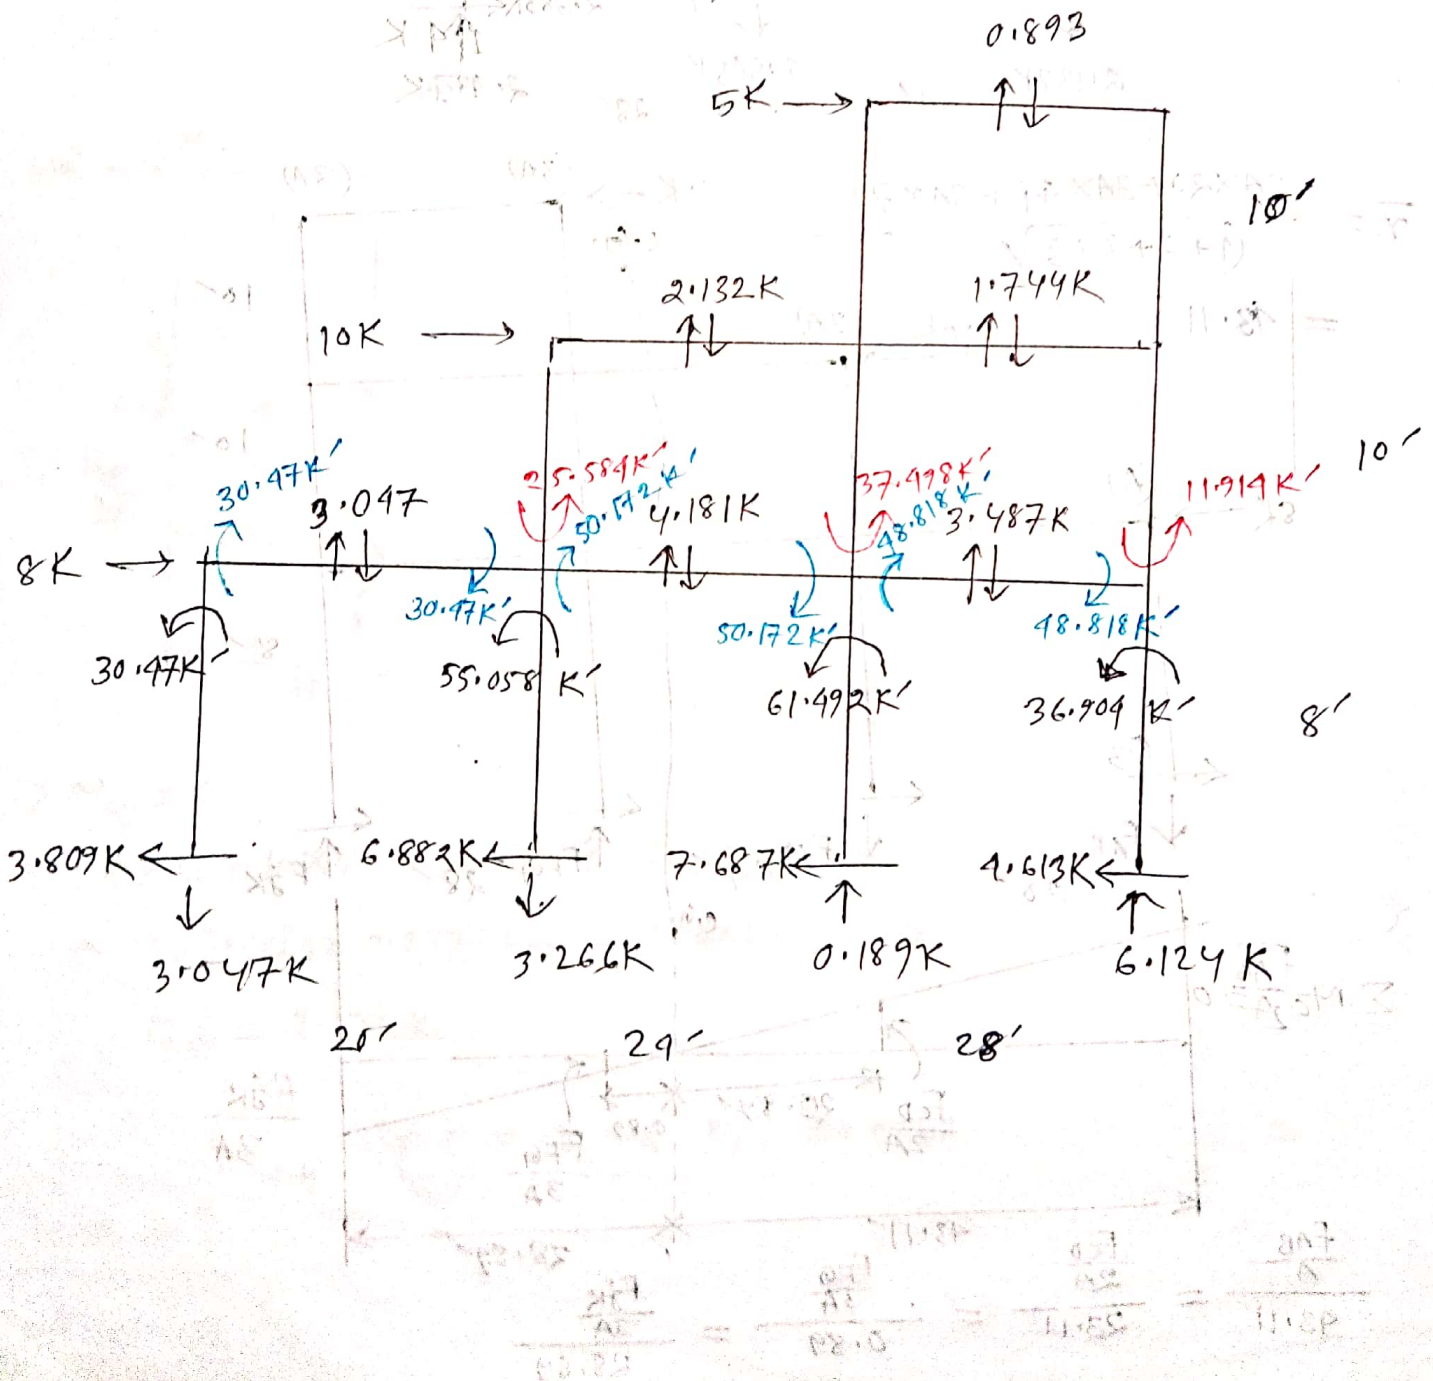 0.893
5K
10'
2.132K
1.744K
10K
10'
30.47K'
3.047
25.584K'
50.172K'
4.181K
37.498K'
48.818K'
3.487K
11.914K'
8K
30.47K'
50.172K'
48.818K'
30.47K'
55.058 K'
61.492K'
36.904 K'
8'
3.809K
6.882K
7.687K
4.613K
3.047K
3.266K
0.189K
6.124K
20'
24'
28'